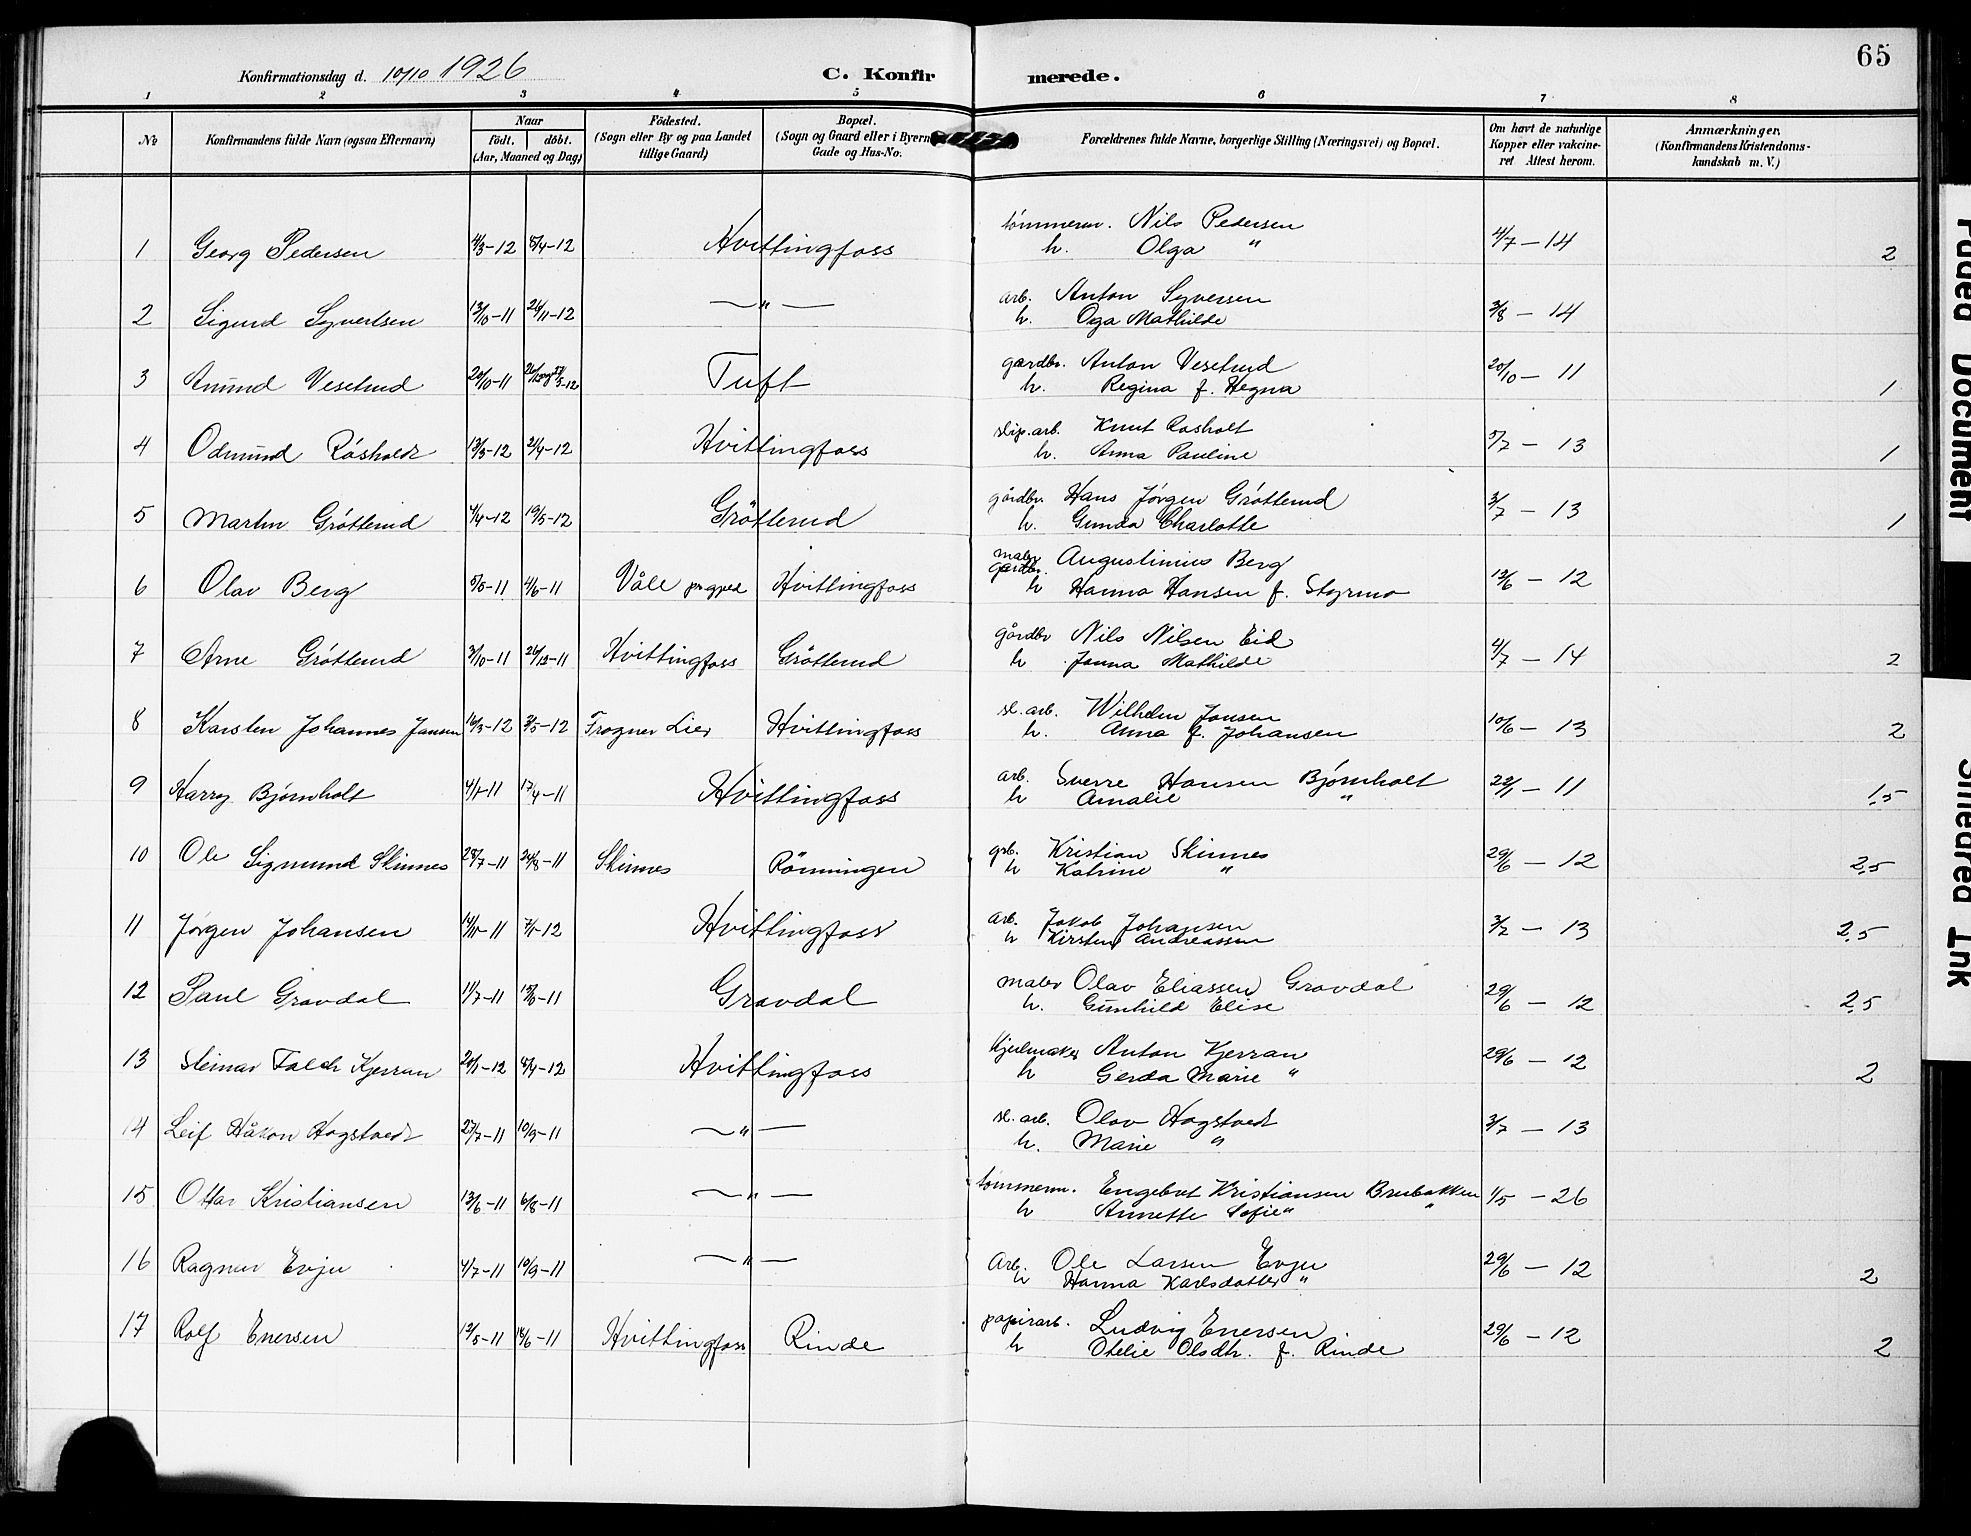 65
Konfirmationsdag d. 10/10 1926
C. Konfirmerede.
1 2 3 4 5 6 7 8
No
Konfirmandens fulde Navn (ogsaa Efternavn)
Naar födt. döbt. (Aar, Maaned og Dag)
Födested. (Sogn eller By og paa Landet tillige Gaard)
Bopæl. (Sogn og Gaard eller i Byern Gade og Hus-No.
Forældrenes fulde Navne, borgerlige Stilling (Næringsvei) og Bopæl.
Om havt de naturlige Kopper eller vakcineret Attest herom.
Anmærkninger. (Konfirmandens Kristendomskundskab m. V.)
1 Georg Pedersen 4/3-12 8/4-12 Hvittingfoss tømmerm. Nils Pedersen 4/7-14
h. Olga " 2
2 Sigurd Syvertsen 13/10-11 Hvittingfoss
—"— arb. Anton Syversen 3/8-14
h. Oga Mathilde
3 Amund Vesetrud 20/10-11 Tuft gardbr. Anton Vesetrud 20/10-11
h. Regina f. Hegna 1
4 Odmund Røsholdt 13/3-12 21/4-12 Hvittingfoss slip.arb. Knut Rosholt 5/7-13
h. Anna Pauline 1
5 Martin Grøtterud 4/4-12 19/5-12 Grøtterud gårdbr. Hans Jørgen Grøtterud 3/7-13
h. Gunda Charlotte 1
6 Olav Berg 5/5-11 4/6-11 Våle Hvittingfoss maler gardbr. Augustinius Berg 12/6-12
h Hanna Hansen f. Styrmo
7 Arne Grøtterud 3/10-11 26/12-11 Hvittingfoss Grøtterud gårdbr Nils Nilsen Eid 4/7-14
h Janna Mathilde 2
8 Karsten Johannes Jansen 16/3-12 3/5-12 Frogner Lier Hvittingfoss sl.arb. Wilhelm Jansen 10/6-13
h. Anna f. Johansen 2
9 Harry Bjørnholt 4/1-11 17/4-11 Hvittingfoss arb. Sverre Hansen Bjørnholt 22/1-11
h Amalie " 1,5
10 Ole Sigmund Skinnes 28/7-11 24/8-11 Skinnes Rønningen grb. Kristian Skinnes 29/6-12
h Katrine " 2,5
11 Jørgen Johansen 14/11-11 7/1-12 Hvittingfoss arb. Jakob Johansen 3/7-13
h Kirsten Andreassen 2,5
12 Paul Gravdal 11/7-11 Gravdal maler Olav Eliassen Gravdal 29/6-12
h. Gunhild Elise 2,5
13 Steinar Falch Kjerran 20/1-12 8/4-12 Hvittingfoss Hjulmaker Anton Kjerran 29/6-12
h Gerda Marie " 2
14 Leif Håkon Hogstvedt 27/7-11 10/9-11 —"— sl. arb. Olav Hogstvedt 3/7-13
h. Marie "
15 Ottar Kristiansen 13/6-11 6/8-11 —"— tømmerm. Engebret Kristiansen Brubakken 1/5-26
h Annette Sofie " "
16 Ragnar Evju 4/7-11 10/9-11 —"— Arb. Ole Larsen Evju 29/6-12
h Hanna Karlsdatter " 2
17 Rolf Enersen 12/5-11 18/6-11 Hvittingfoss Rinde papirarb. Ludvig Enersen 29/6-12
h Otelie Olsdtr. f. Rinde 2
Faded Document
Smeared Ink